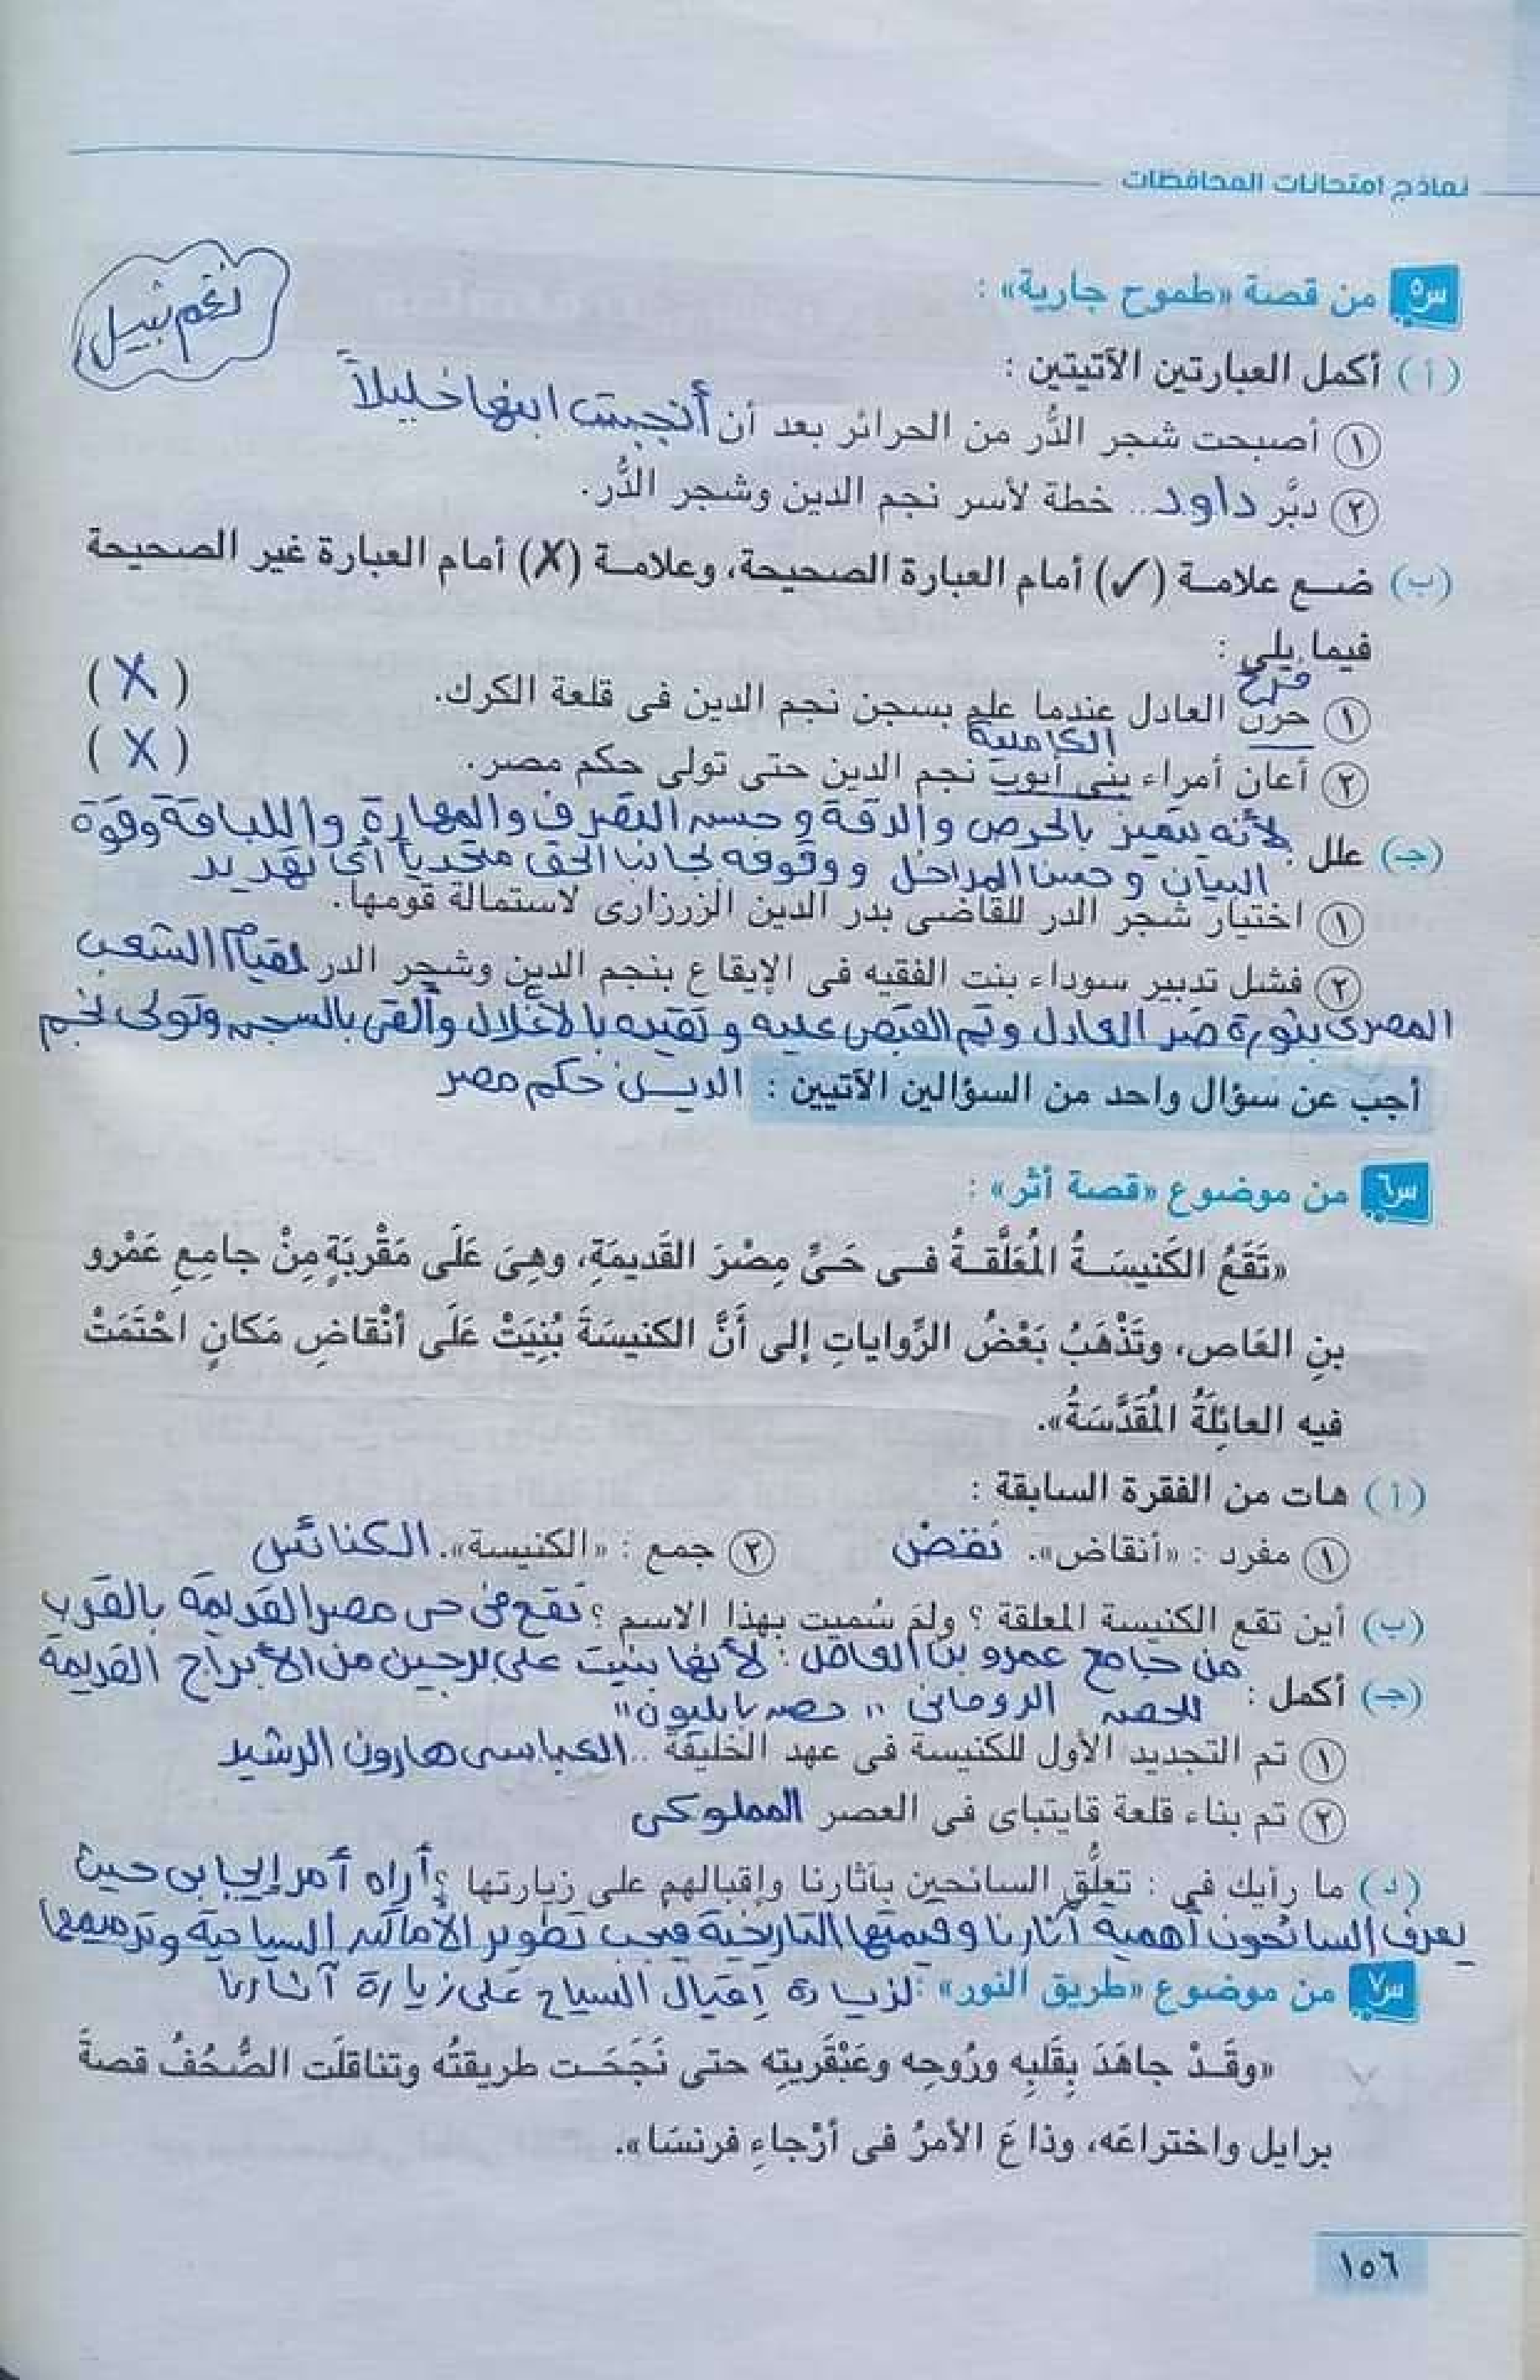 نماذج امتحانات المحافظات
س٥ من قصة «طموح جارية» :
نغم نبيل
(أ) أكمل العبارتين الآتيتين :
١ أصبحت شجر الدُّر من الحرائر بعد أن أنجبت ابنها خليلاً
٢ دبَّر داود.. خطة لأسر نجم الدين وشجر الدُّر.
(ب) ضــع علامــة (✓) أمام العبارة الصحيحة، وعلامــة (✗) أمام العبارة غير الصحيحة
فيما يلي :
فرح
١ حزن العادل عندما علم بسجن نجم الدين فى قلعة الكرك. (X)
الكاملية
٢ أعان أمراء بنى أيوب نجم الدين حتى تولى حكم مصر. (X)
(جـ) علل : لأنه يتميز بالحرص والدقة وحسن التصرف والمهارة واللباقة وقوة
البيان وحسن المداخل ووقوفه بجانب الحق متحدياً أى تهديد
١ اختيار شجر الدر للقاضى بدر الدين الزرزارى لاستمالة قومها.
٢ فشل تدبير سوداء بنت الفقيه فى الإيقاع بنجم الدين وشجر الدر لقيام الشعب
المصرى بثورة ضد العادل وتم القبض عليه وتقيده بالأغلال وألقى بالسجن وتولى نجم
أجب عن سؤال واحد من السؤالين الآتيين : الدين حكم مصر
س٦ من موضوع «قصة أثر» :
«تَقَعُ الكَنيسَــةُ المُعَلَّقــةُ فــى حَىِّ مِصْرَ القَديمَةِ، وهِىَ عَلَى مَقْرُبَةٍ مِنْ جامِعِ عَمْرو
بنِ العَاص، وتَذْهَبُ بَعْضُ الرِّواياتِ إلى أَنَّ الكنيسَةَ بُنِيَتْ عَلَى أنْقاضِ مَكَانٍ احْتَمَتْ
فيه العائِلَةُ المُقَدَّسَةُ».
(أ) هات من الفقرة السابقة :
١ مفرد : «أنقاض». نقض ٢ جمع : «الكنيسة». الكنائس
(ب) أين تقع الكنيسة المعلقة ؟ ولمَ سُميت بهذا الاسم ؟ تقع فى حى مصر القديمة بالقرب
من جامع عمرو بن العاص : لأنها بنيت على برجين من الأبراج القديمة
(جـ) أكمل : للحصن الرومانى "حصن بابليون"
١ تم التجديد الأول للكنيسة فى عهد الخليفة .. العباسى هارون الرشيد
٢ تم بناء قلعة قايتباى فى العصر المملوكى
(د) ما رأيك في : تعلُّق السائحين بآثارنا وإقبالهم على زيارتها ؟ أراه أمر إيجابى حيث
يعرف السائحون أهمية آثارنا وقيمتها التاريخية فيجب تطوير الأماكن السياحية وترميمها
س٧ من موضوع «طريق النور» : لزيادة إقبال السياح على زيارة آثارنا
«وقَــدْ جاهَدَ بِقَلبِه ورُوحِه وعَبْقَريتِه حتى نَجَحَــت طريقتُه وتناقلَت الصُّحُفُ قصةَ
برايل واختراعَه، وذاعَ الأمرُ فى أرْجاءِ فرنسَا».
١٥٦